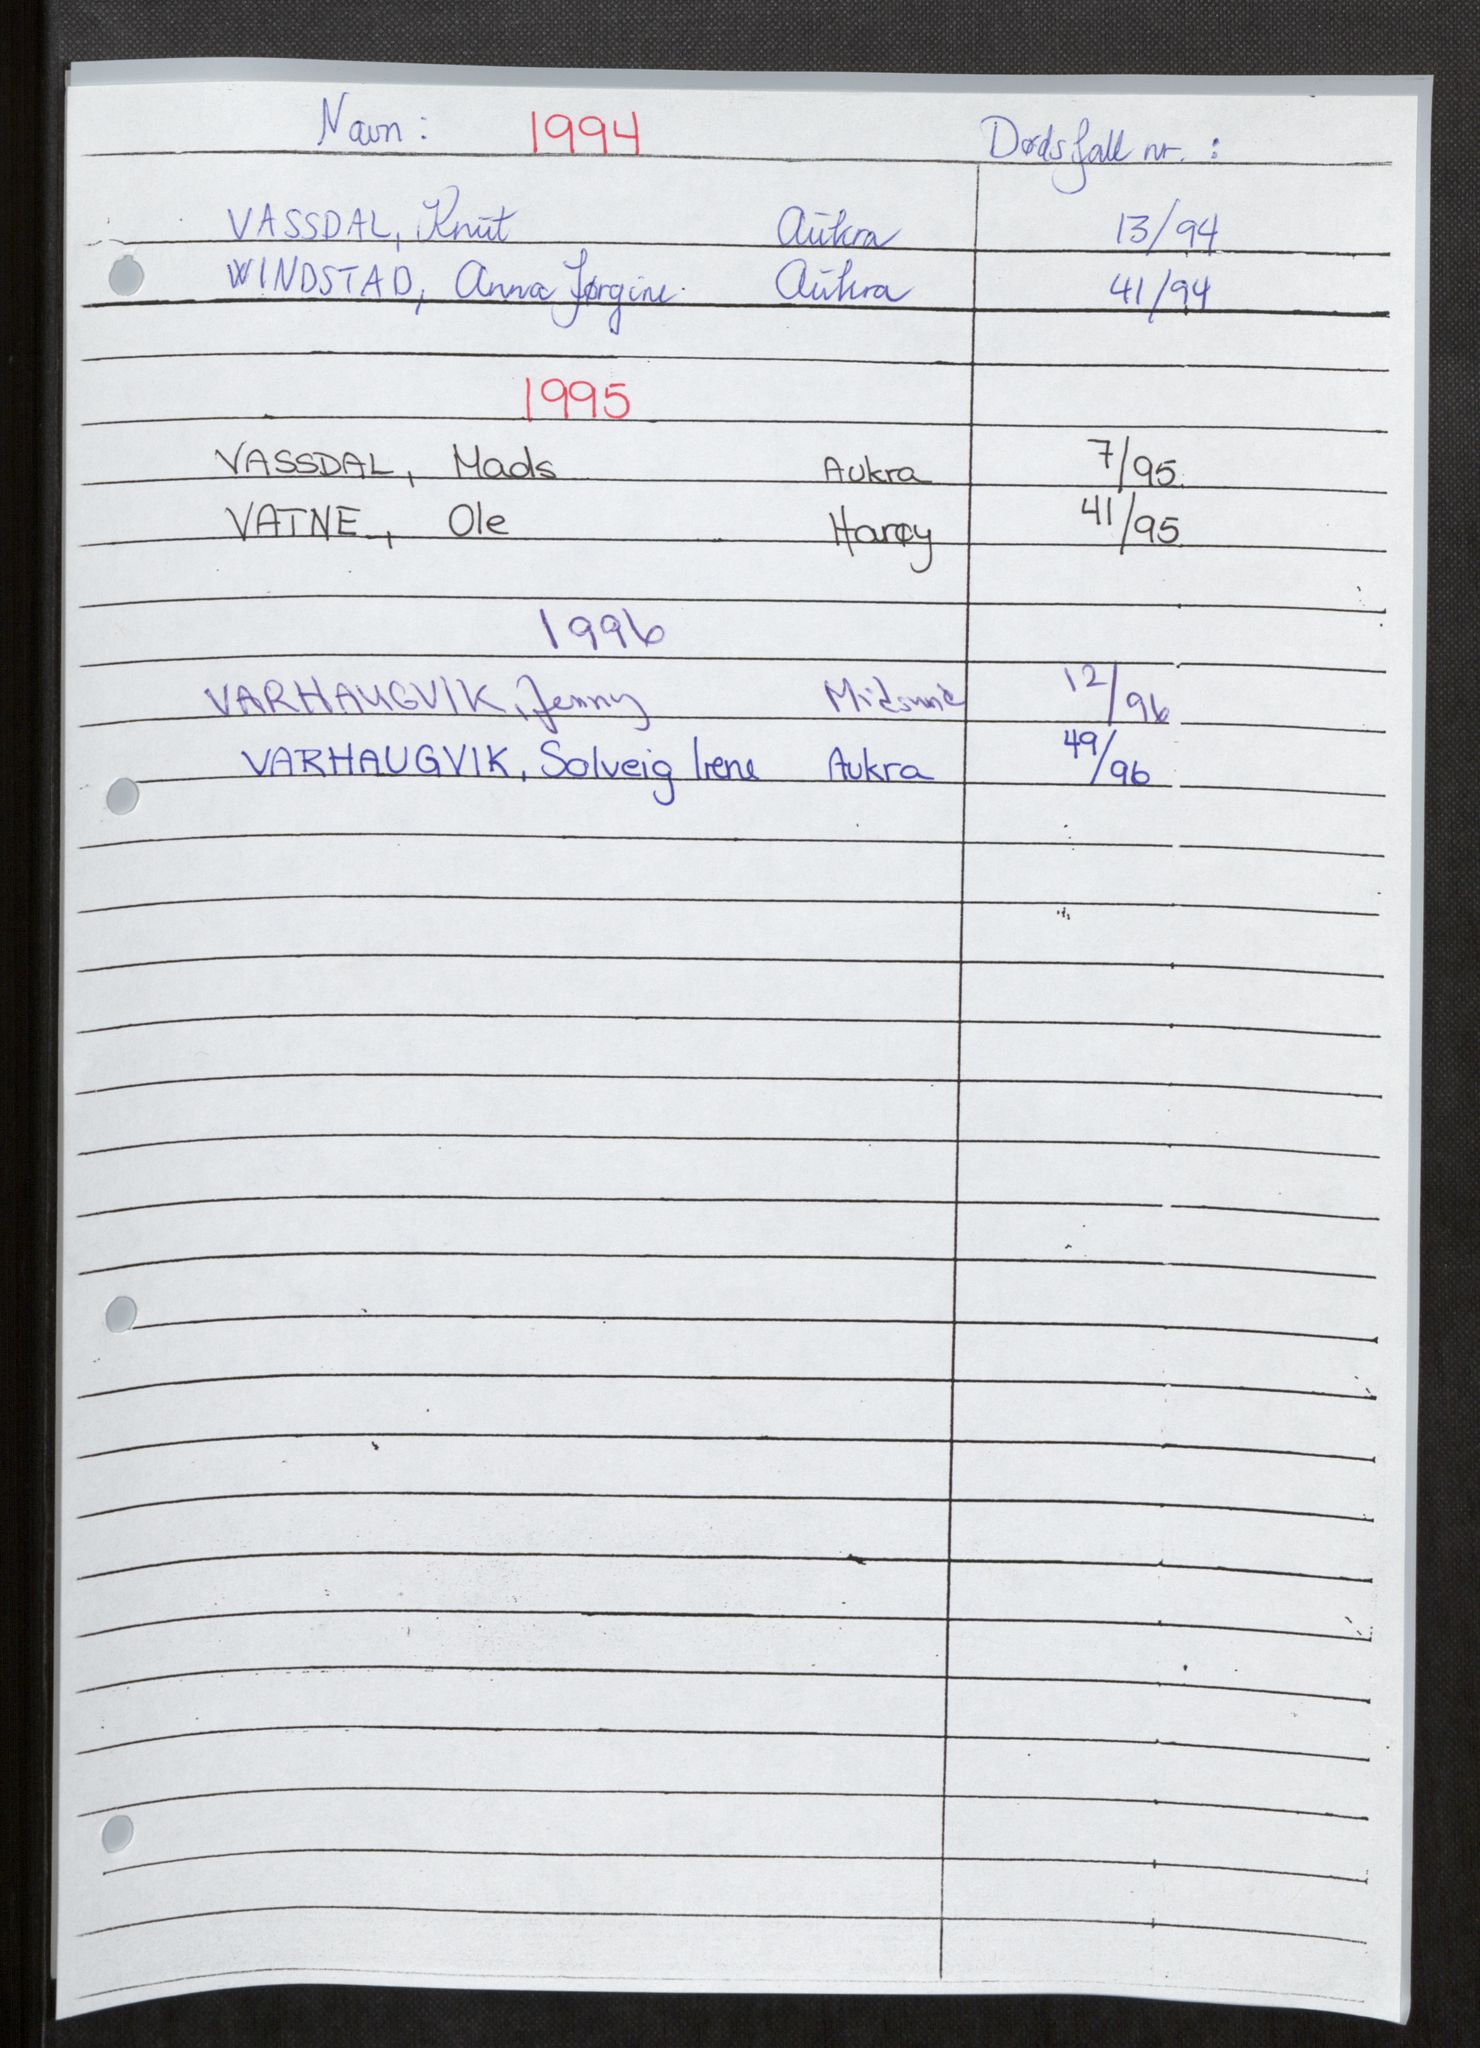 Navn: 1994 Dødsfall nr.:
VASSDAL, Knut Aukra 13/94
WINDSTAD, Anna Jørgine Aukra 41/94
1995
VASSDAL, Mads Aukra 7/95
VATNE, Ole Harøy 41/95
1996
VARHAUGVIK, Jenny Midsund 12/96
VARHAUGVIK, Solveig Irene Aukra 49/96